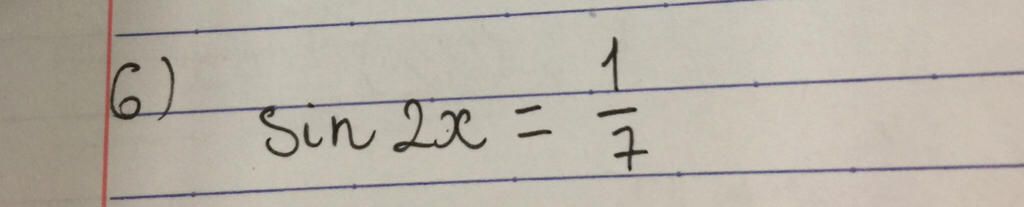 6) sin 2x = 1/7